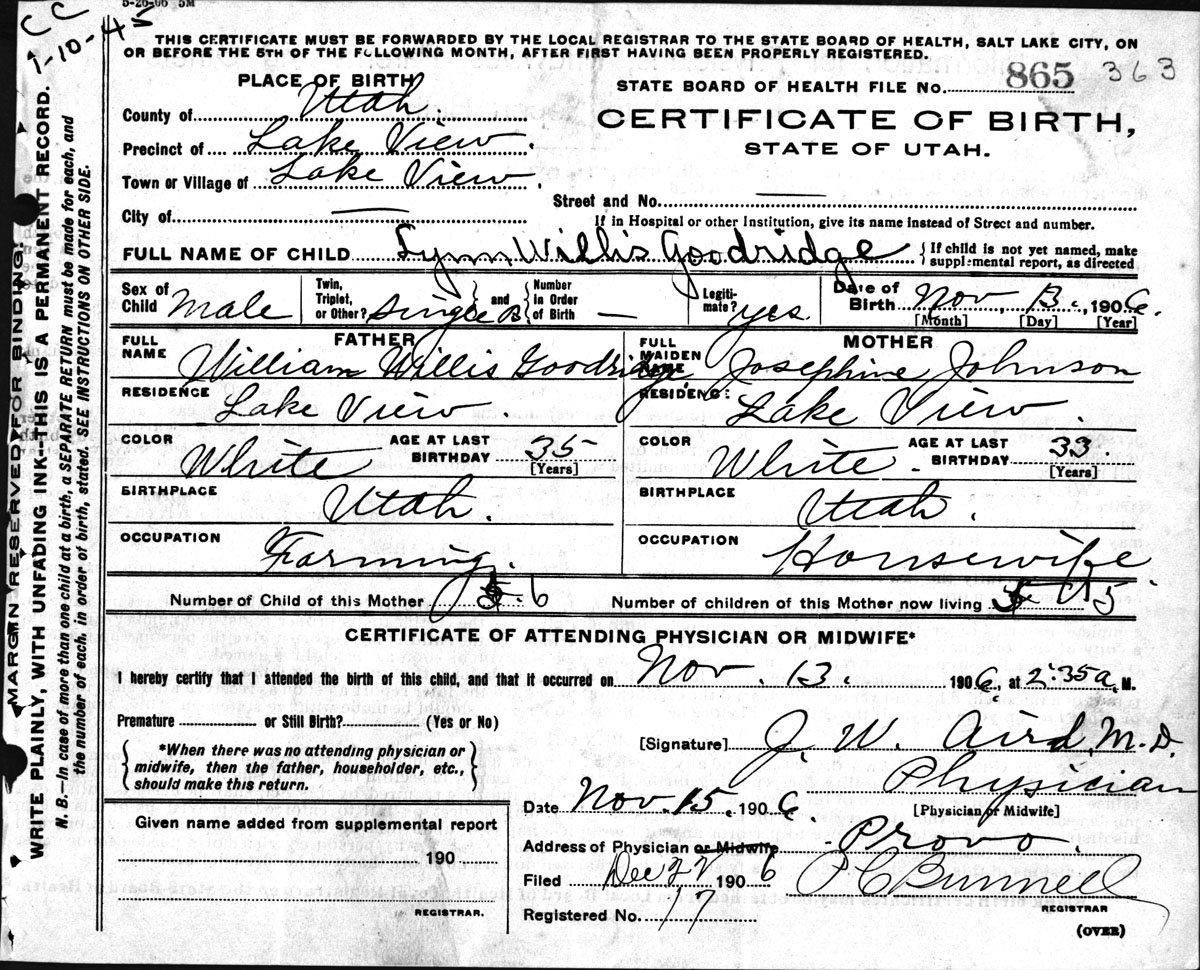 5-26-06 5M
CC
1-10-45
THIS CERTIFICATE MUST BE FORWARDED BY THE LOCAL REGISTRAR TO THE STATE BOARD OF HEALTH, SALT LAKE CITY, ON
OR BEFORE THE 5TH OF THE FOLLOWING MONTH, AFTER FIRST HAVING BEEN PROPERLY REGISTERED.
PLACE OF BIRTH
County of Utah.
Precinct of Lake View.
Town or Village of Lake View.
City of —
STATE BOARD OF HEALTH FILE No. 865 363
CERTIFICATE OF BIRTH,
STATE OF UTAH.
Street and No. —
If in Hospital or other Institution, give its name instead of Street and number.
FULL NAME OF CHILD Lynn Willis Goodridge { If child is not yet named, make
supplemental report, as directed
Sex of Child Male
Twin, Triplet, or Other? Single } and { Number in Order of Birth —
Legitimate? yes
Date of Birth Nov. 13., 1906.
[Month] [Day] [Year]
FATHER
FULL NAME William Willis Goodridge.
RESIDENCE Lake View.
COLOR White AGE AT LAST BIRTHDAY 35
[Years]
BIRTHPLACE Utah.
OCCUPATION Farming.
MOTHER
FULL MAIDEN NAME Josephine Johnson
RESIDENCE Lake View.
COLOR White. AGE AT LAST BIRTHDAY 33
[Years]
BIRTHPLACE Utah.
OCCUPATION Housewife.
Number of Child of this Mother 6 Number of children of this Mother now living 5
CERTIFICATE OF ATTENDING PHYSICIAN OR MIDWIFE*
I hereby certify that I attended the birth of this child, and that it occurred on Nov. 13. 1906, at 2:35 a. M.
Premature or Still Birth? (Yes or No)
{ *When there was no attending physician or
midwife, then the father, householder, etc.,
should make this return. }
[Signature] J. W. Aird, M.D.
Physician
[Physician or Midwife]
Date Nov. 15., 1906
Address of Physician or Midwife Provo.
Filed Dec 22 1906 P C Bunnell
REGISTRAR
Registered No. 17
(OVER)
Given name added from supplemental report
190
REGISTRAR.
MARGIN RESERVED FOR BINDING!
WRITE PLAINLY, WITH UNFADING INK—THIS IS A PERMANENT RECORD.
N. B.—In case of more than one child at a birth, a SEPARATE RETURN must be made for each, and
the number of each, in order of birth, stated. SEE INSTRUCTIONS ON OTHER SIDE.